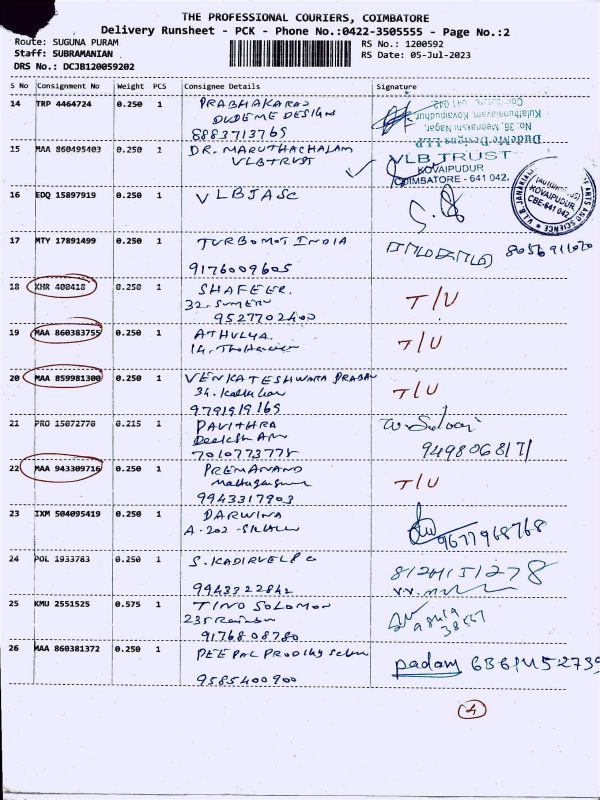 THE PROFESSIONAL COURIERS, COIMBATORE
Delivery Runsheet - PCK - Phone No.:0422-3505555 - Page No.:2
Route: SUGUNA PURAM RS No.: 1200592
Staff: SUBRAMANIAN RS Date: 05-Jul-2023
DRS No.: DCJB120059202
S No Consignment No Weight PCS Consignee Details Signature
14 TRP 4464724 0.250 1 PRABHAKARAN
DUDEME DESIGNS
8883713765
DudeMe Designs LLP
No.36, Meenakshi Nagar
Kulathupalayam, Kovaipudur
Coimbatore 641 042.
15 MAA 860495403 0.250 1 DR. MARUTHACHALAM
VLB TRUST
VLB TRUST
KOVAIPUDUR
COIMBATORE - 641 042.
16 EDQ 15897919 0.250 1 VLBJASC
KOVAIPUDUR
CBE-641 042
ARTS AND SCIENCE
V.L.B. JANAKIAMMAL
17 MTY 17891499 0.250 1 TURBOMOT INDIA
9176009605
18 KHR 400418 0.250 1 SHAFEER.
32. SUMERU
9527702400
T/U
19 MAA 860383755 0.250 1 ATHULYA.
T/U
20 MAA 859981300 0.250 1 VENKATESHWARA PRABAU
9791919169
T/U
21 PRO 15072770 0.215 1 PAVITHRA
7010773778
22 MAA 943309716 0.250 1 PREMANAND
9943317903
T/U
23 IXM 504095419 0.250 1 DARWINA
A-202
9677968768
24 POL 1933783 0.250 1 S. KADIRVEL
9943322842
25 KMU 2551525 0.575 1 TINO SOLOMON
9176808780
26 MAA 860381372 0.250 1 PEEPAL PRODIGY
9585400900
4